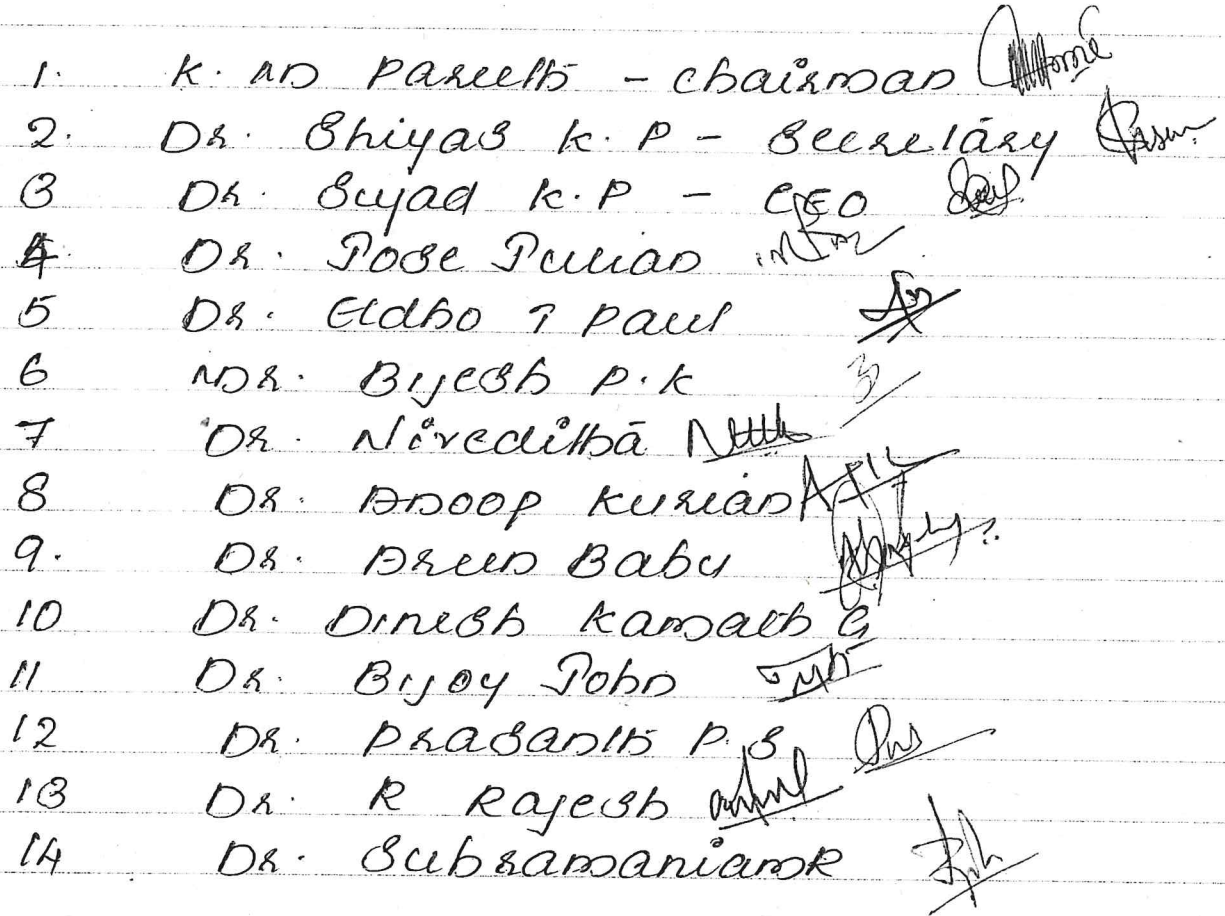 1. K. M Pareeth - Chairman
2. Dr. Shiyas K. P - Secretary
3 Dr. Sujad K. P - CEO
4. Dr. Jose Julian
5 Dr. Eldho T Paul
6 Dr. Bijesh P. K
7 Dr. Niveditha
8 Dr. Anoop Kurian
9. Dr. Arun Babu
10 Dr. Dinesh Kamath G
11 Dr. Bijoy John
12 Dr. Prasanth P. S
13 Dr. R Rajesh
14 Dr. Subramaniam R